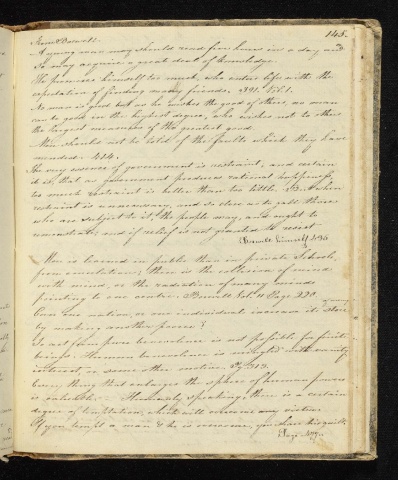 145.
From Boswell.
A young man may should read five hours in a day and
so may acquire a great deal of knowledge.
He promises himself too much, who enters life with the
expectation of finding many friends. 391. Vol. 1.
No man is good but as he wishes the good of others, no man
can be good in the highest degree, who wishes not to others
the largest measures of the greatest good.
Men should not be told of the faults which they have
mended. 414.
The very essence of government is restraint, and certain
it is, that as government produces rational happiness,
too much restraint is better than too little. But when
restraint is unnecessary, and so close as to gall those
who are subject to it, the people may, and ought to
remonstrate, and if relief is not granted to resist
Boswell himself 496
More is learned in public than in private Schools,
from emulation; there is the collision of mind
with mind, or the radiation of many minds
pointing to one centre. Boswell Vol. II Page 220
Can one nation, or one individual increase its store
by making another poorer?
To act from pure benevolence is not possible for finite
beings. Human benevolence is mingled with vanity
interest, or some other motive. Pg 313.
Every thing that enlarges the sphere of human powers
is valuable. Humanly speaking, there is a certain
degree of temptation, which will overcome any virtue
If you tempt a man & he is overcome, you share his guilt.
Page